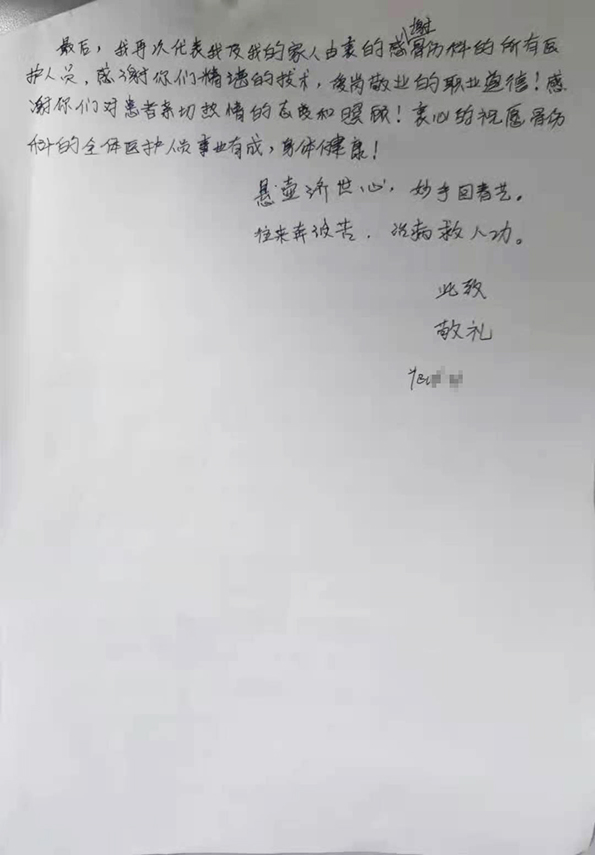 最后，我再次代表我及我的家人由衷的感谢骨伤科的所有医
护人员，感谢你们精湛的技术，爱岗敬业的职业道德！感
谢你们对患者亲切热情的态度和照顾！衷心的祝愿骨伤
科的全体医护人员事业有成，身体健康！
悬壶济世心，妙手回春艺。
往来奔波苦，治病救人功。
此致
敬礼